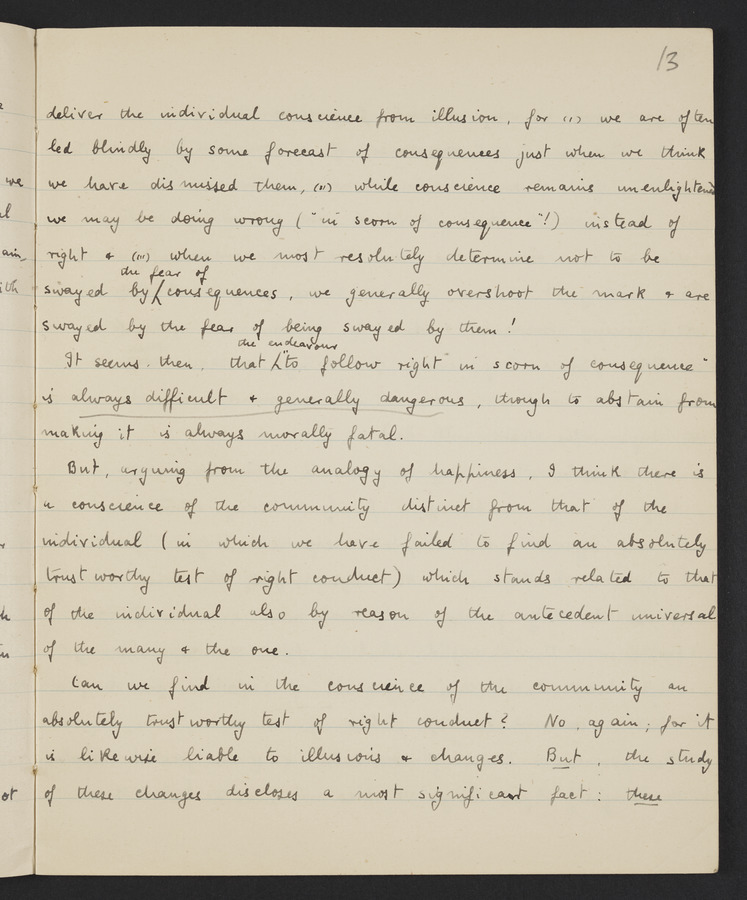 13
deliver the individual conscience from illusion, for (i) we are often
led blindly by some forecast of consequences just when we think
we have dismissed them, (ii) while conscience remains unenlightened
we may be doing wrong ("in scorn of consequence"!) instead of
right & (iii) when we most resolutely determine not to be
the fear of
swayed by consequences, we generally overshoot the mark & are
swayed by the fear of being swayed by them!
the endeavour
It seems, then, that "to follow right in scorn of consequence"
is always difficult & generally dangerous, though to abstain from
making it is always morally fatal.
But, arguing from the analogy of happiness, I think there is
a conscience of the community distinct from that of the
individual (in which we have failed to find an absolutely
trustworthy test of right conduct) which stands related to that
of the individual also by reason of the antecedent universal
of the many & the one.
Can we find in the conscience of the community an
absolutely trustworthy test of right conduct? No, again; for it
is likewise liable to illusions & changes. But, the study
of these changes discloses a most significant fact: these
we
ain-
ith
ot